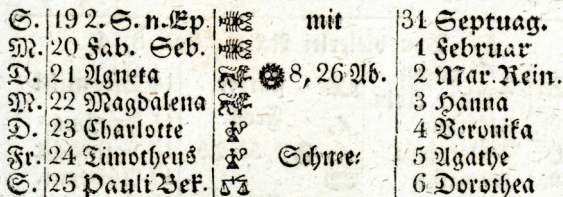 S. 19 2. S. n. Ep. mit 31 Septuag.
M. 20 Fab. Seb. 1 Februar
D. 21 Agneta 8, 26 Ab. 2 Mar. Rein.
M. 22 Magdalena 3 Hanna
D. 23 Charlotte 4 Veronika
Fr. 24 Timotheus Schnee: 5 Agathe
S. 25 Pauli Bek. 6 Dorothea